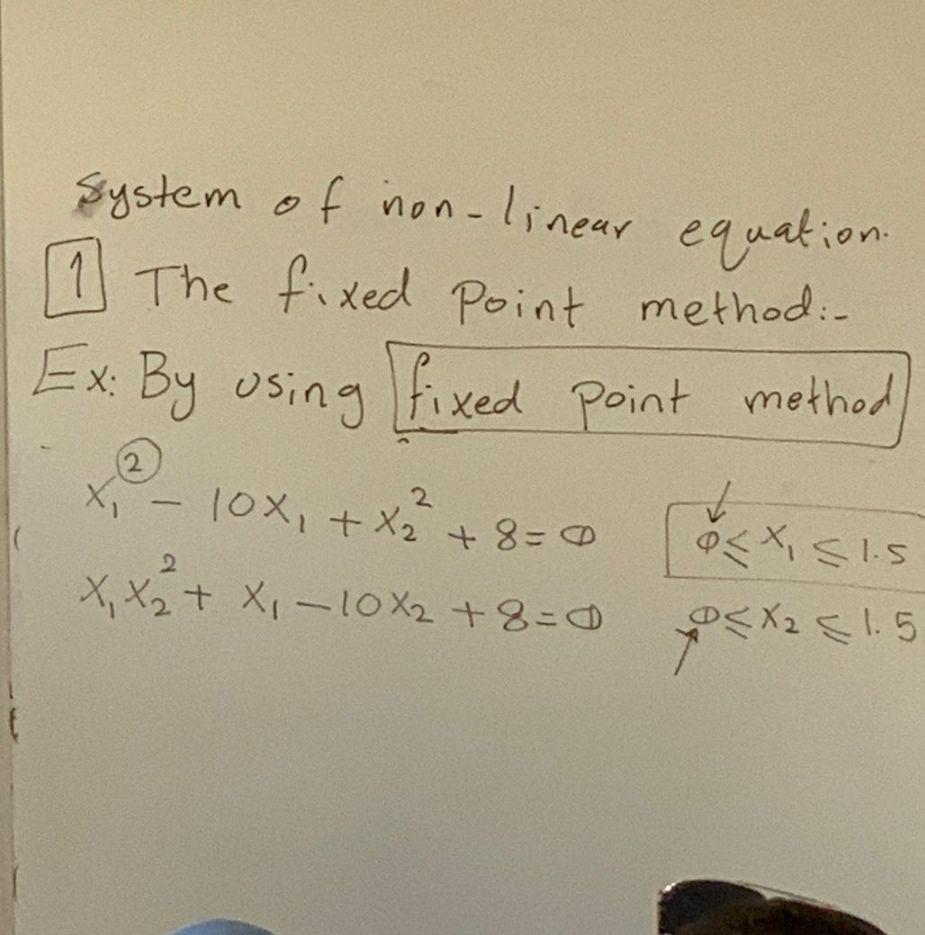 System of non-linear equation.
1 The fixed Point method:-
Ex: By using fixed Point method
x₁² - 10x₁ + x₂² + 8 = 0 0 ≤ x₁ ≤ 1.5
x₁x₂² + x₁ - 10x₂ + 8 = 0 0 ≤ x₂ ≤ 1.5